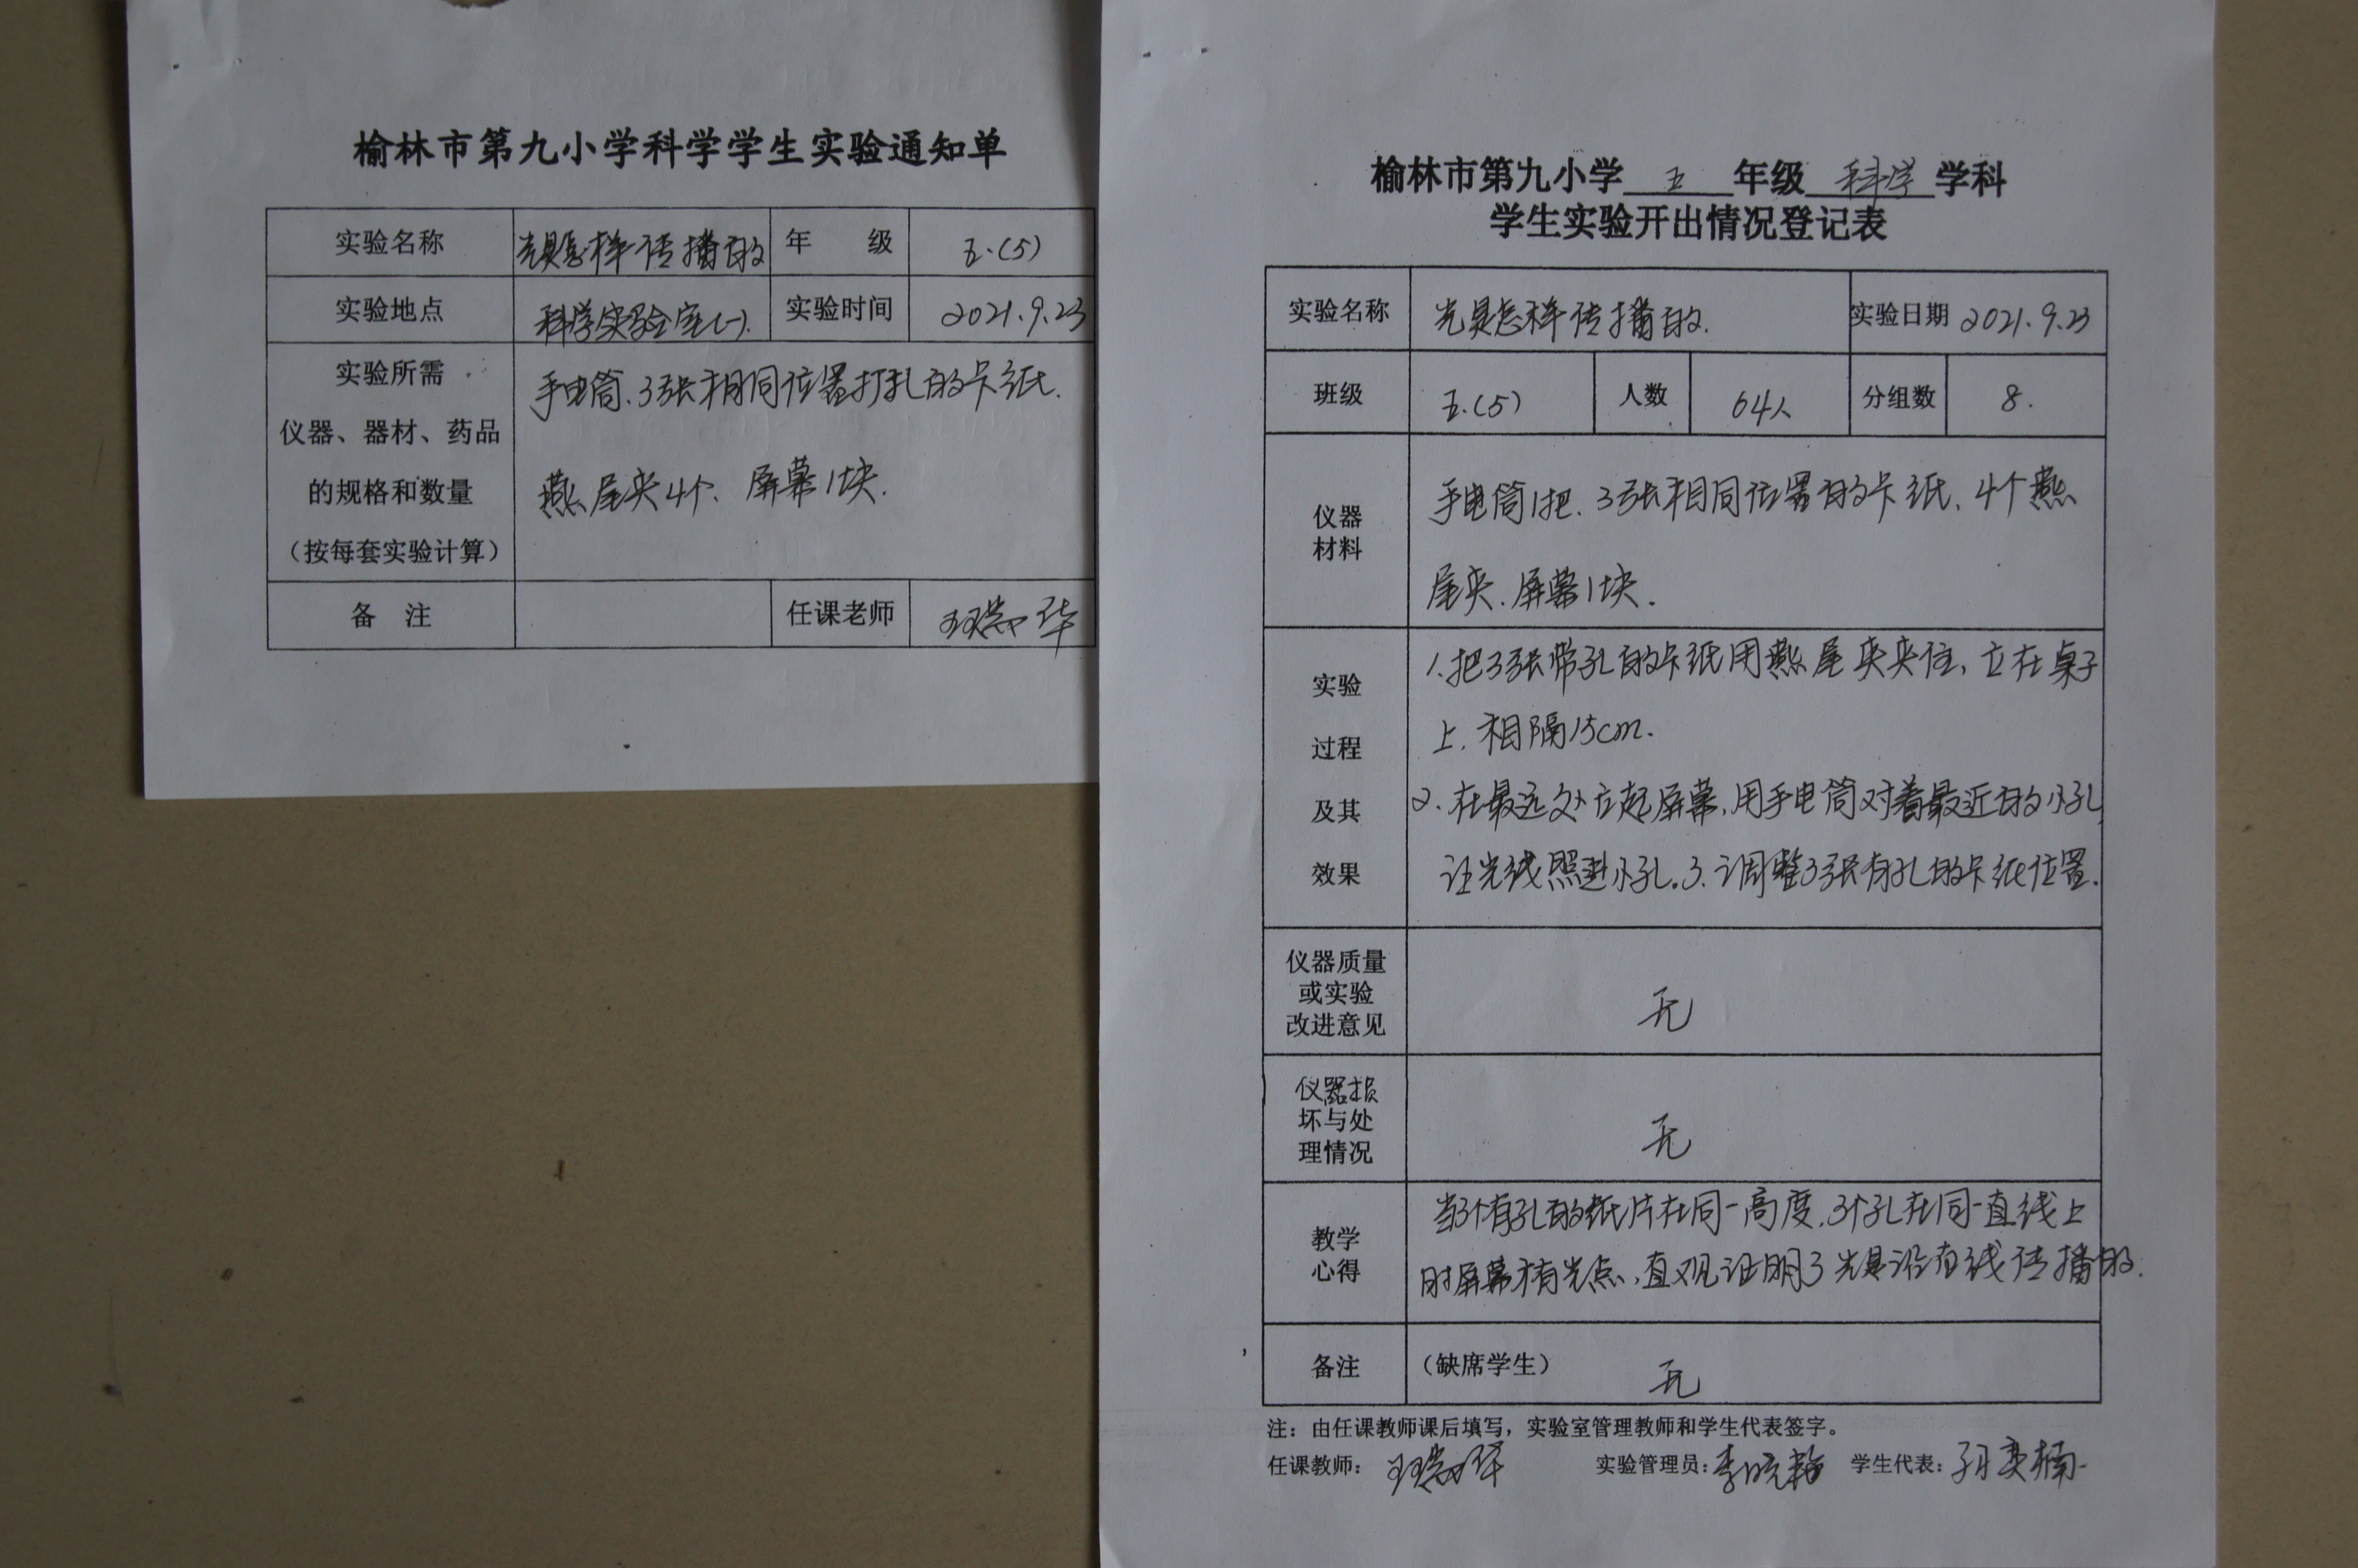 榆林市第九小学科学学生实验通知单
实验名称 光是怎样传播的 年 级 五.(5)
实验地点 科学实验室(一). 实验时间 2021.9.23
实验所需
仪器、器材、药品
的规格和数量
（按每套实验计算）
手电筒、3张相同位置打孔的卡纸.
燕尾夹4个、屏幕1块.
备 注 任课老师 王瑞华
榆林市第九小学 五 年级 科学 学科
学生实验开出情况登记表
实验名称 光是怎样传播的. 实验日期 2021.9.23
班级 五.(5) 人数 64人 分组数 8.
仪器
材料
手电筒1把、3张相同位置的卡纸、4个燕
尾夹、屏幕1块.
实验
过程
及其
效果
1.把3张带孔的卡纸用燕尾夹夹住,立在桌子
上,相隔15cm.
2.在最远处立起屏幕,用手电筒对着最近的小孔,
让光线照进小孔。3.调整3张有孔的卡纸位置.
仪器质量
或实验
改进意见
无
仪器损
坏与处
理情况
无
教学
心得
当3个有孔的纸片在同一高度,3个孔在同一直线上
时屏幕才有光点,直观证明了光是沿直线传播的.
备注 （缺席学生） 无
注：由任课教师课后填写，实验室管理教师和学生代表签字。
任课教师： 王瑞华 实验管理员： 李晓 学生代表： 孙奕楠